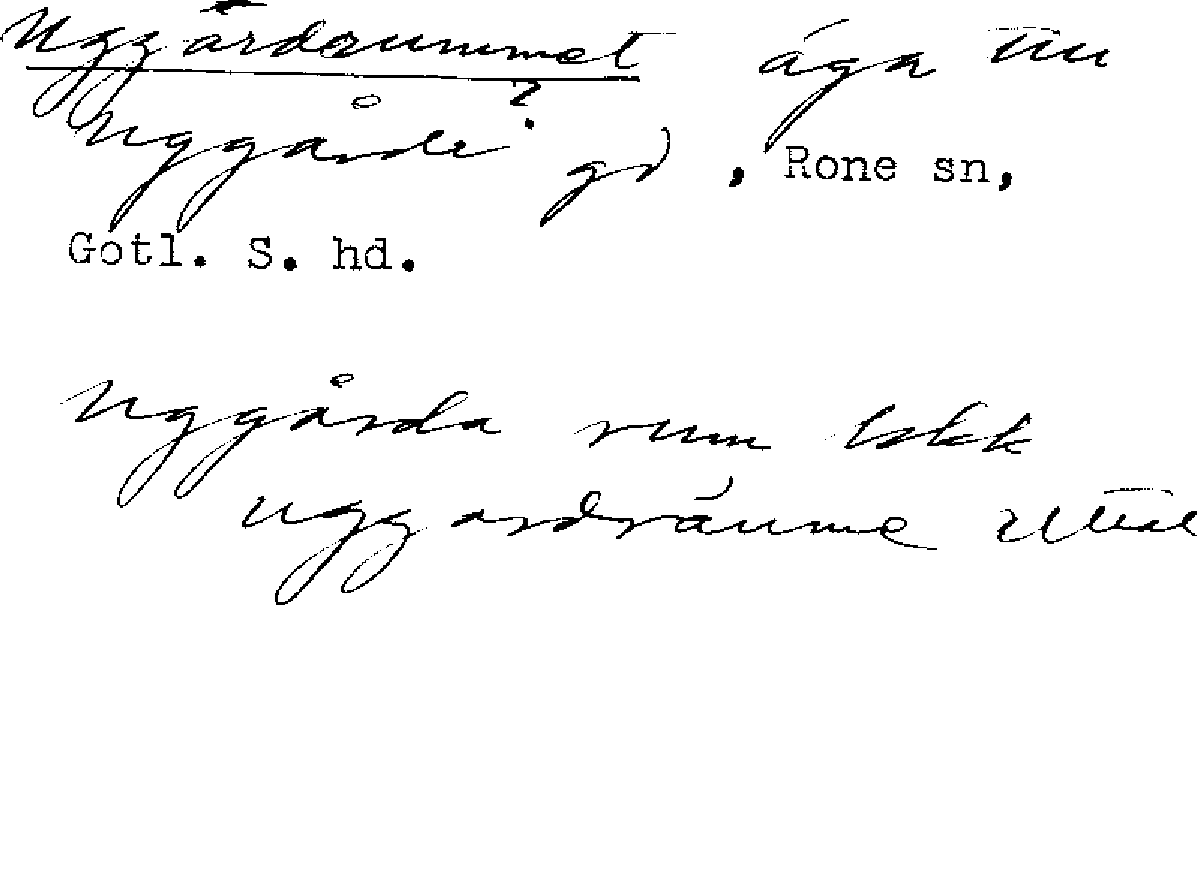 Uggårdrummet äga till
Uggårde? gd, Rone sn,
Gotl. S. hd.
Uggårda rum
uggardráume